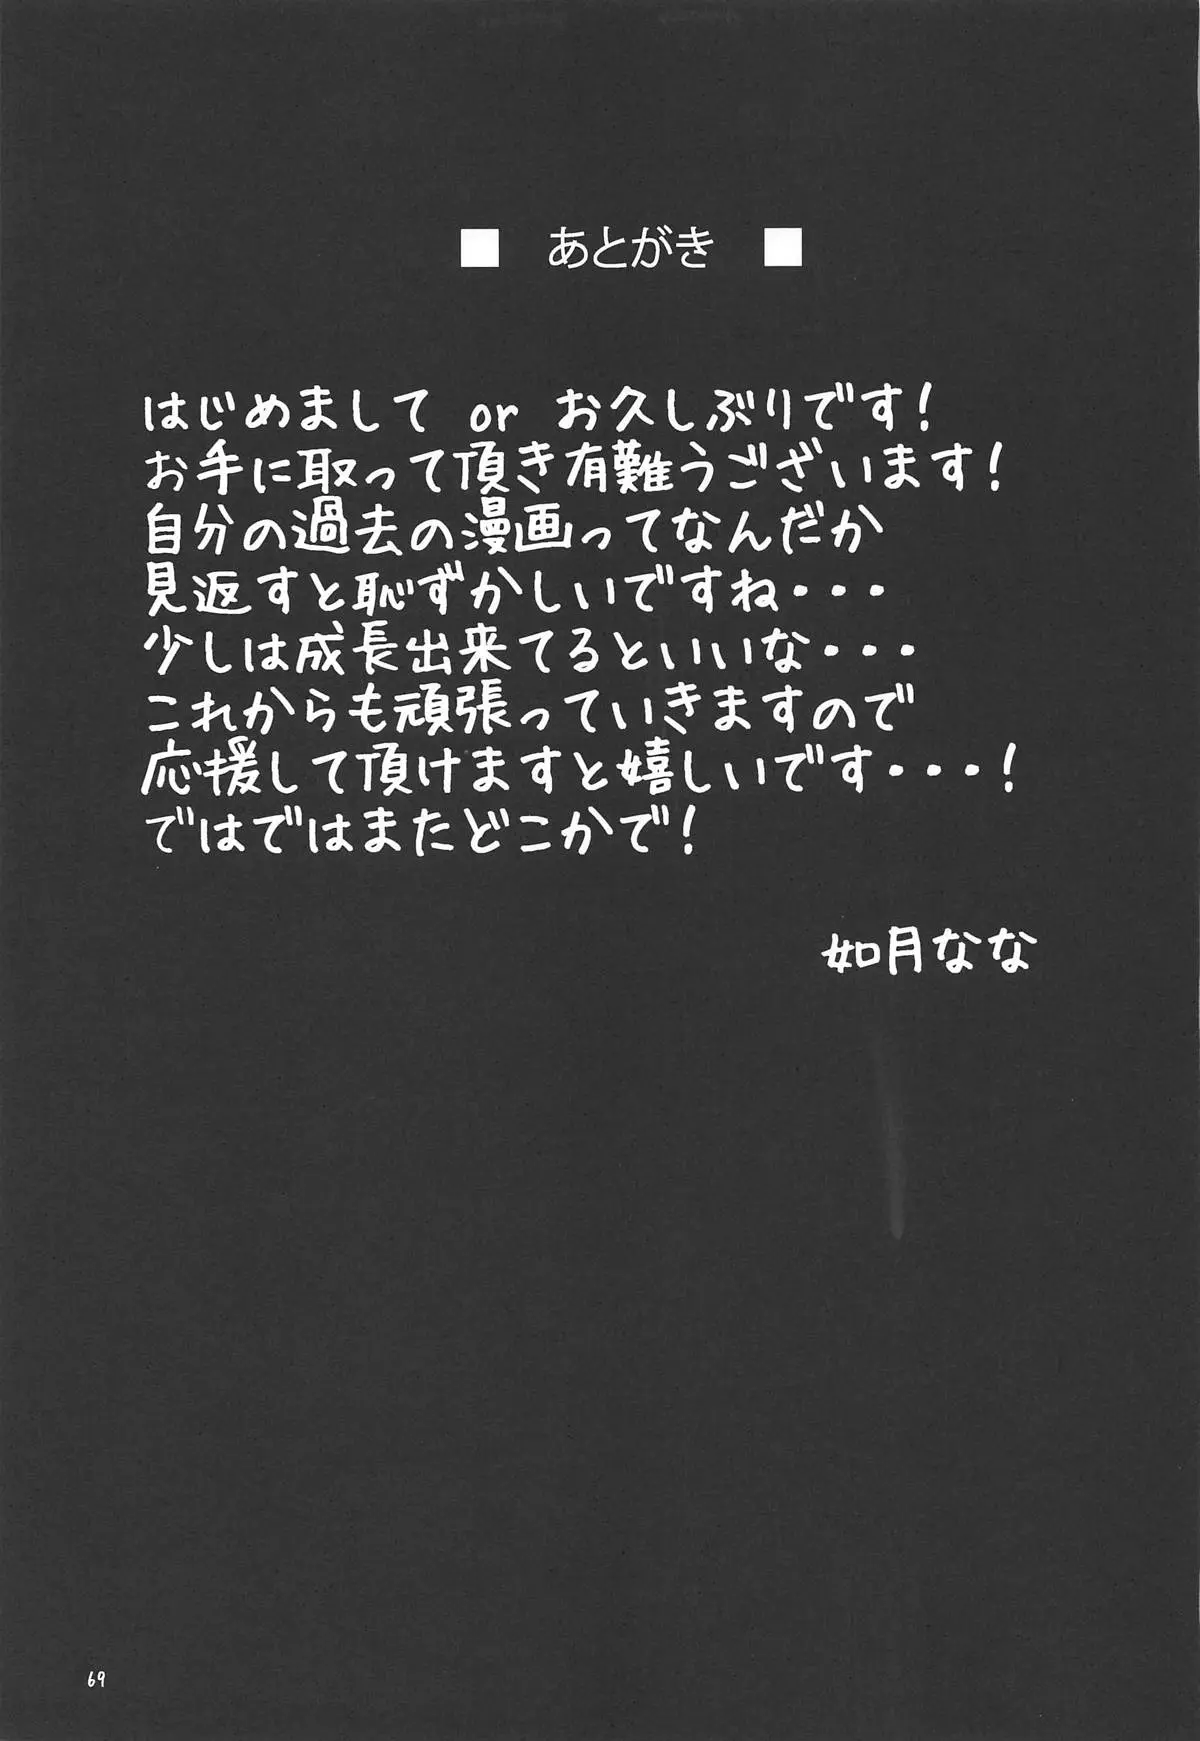 ■ あとがき ■
はじめまして or お久しぶりです!
お手に取って頂き有難うございます!
自分の過去の漫画ってなんだか
見返すと恥ずかしいですね・・・
少しは成長出来てるといいな・・・
これからも頑張っていきますので
応援して頂けますと嬉しいです・・・!
ではではまたどこかで!
如月なな
69